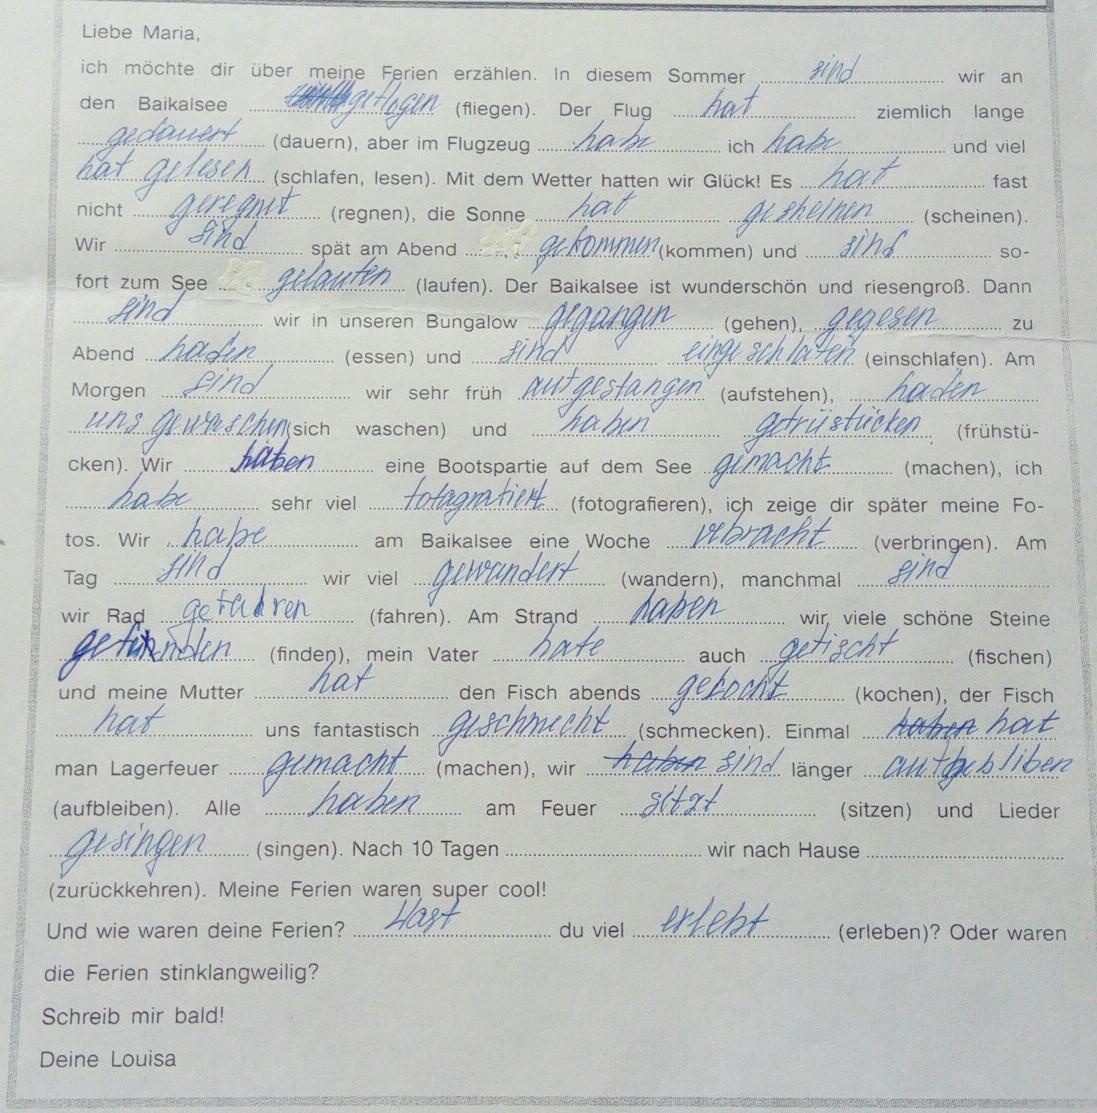 Liebe Maria,
ich möchte dir über meine Ferien erzählen. In diesem Sommer sind wir an
den Baikalsee geflogen (fliegen). Der Flug hat ziemlich lange
gedauert (dauern), aber im Flugzeug habe ich habe und viel
hat gelesen (schlafen, lesen). Mit dem Wetter hatten wir Glück! Es hat fast
nicht geregnit (regnen), die Sonne hat gesheinen (scheinen).
Wir sind spät am Abend gekommen (kommen) und sind so-
fort zum See gelaufen (laufen). Der Baikalsee ist wunderschön und riesengroß. Dann
sind wir in unseren Bungalow gegangen (gehen), gegesen zu
Abend haben (essen) und sind eingeschlafen (einschlafen). Am
Morgen sind wir sehr früh aufgestangen (aufstehen), haben
uns gewaschen (sich waschen) und haben getrüstücken (frühstü-
cken). Wir haben eine Bootspartie auf dem See gemacht (machen), ich
habe sehr viel fotografiert (fotografieren), ich zeige dir später meine Fo-
tos. Wir habe am Baikalsee eine Woche vebracht (verbringen). Am
Tag sind wir viel gewandert (wandern), manchmal sind
wir Rad gefahren (fahren). Am Strand haben wir viele schöne Steine
gefunden (finden), mein Vater hate auch gefischt (fischen)
und meine Mutter hat den Fisch abends gekocht (kochen), der Fisch
hat uns fantastisch geschmecht (schmecken). Einmal haben hat
man Lagerfeuer gemacht (machen), wir haben sind länger aufgebliben
(aufbleiben). Alle haben am Feuer sitzt (sitzen) und Lieder
gesingen (singen). Nach 10 Tagen wir nach Hause
(zurückkehren). Meine Ferien waren super cool!
Und wie waren deine Ferien? Hast du viel erlebt (erleben)? Oder waren
die Ferien stinklangweilig?
Schreib mir bald!
Deine Louisa